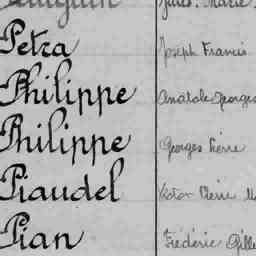 Petra Joseph Francis
Philippe Anatole Georges
Philippe Georges Pierre
Piaudel Victor Pierre
Pian Frédéric